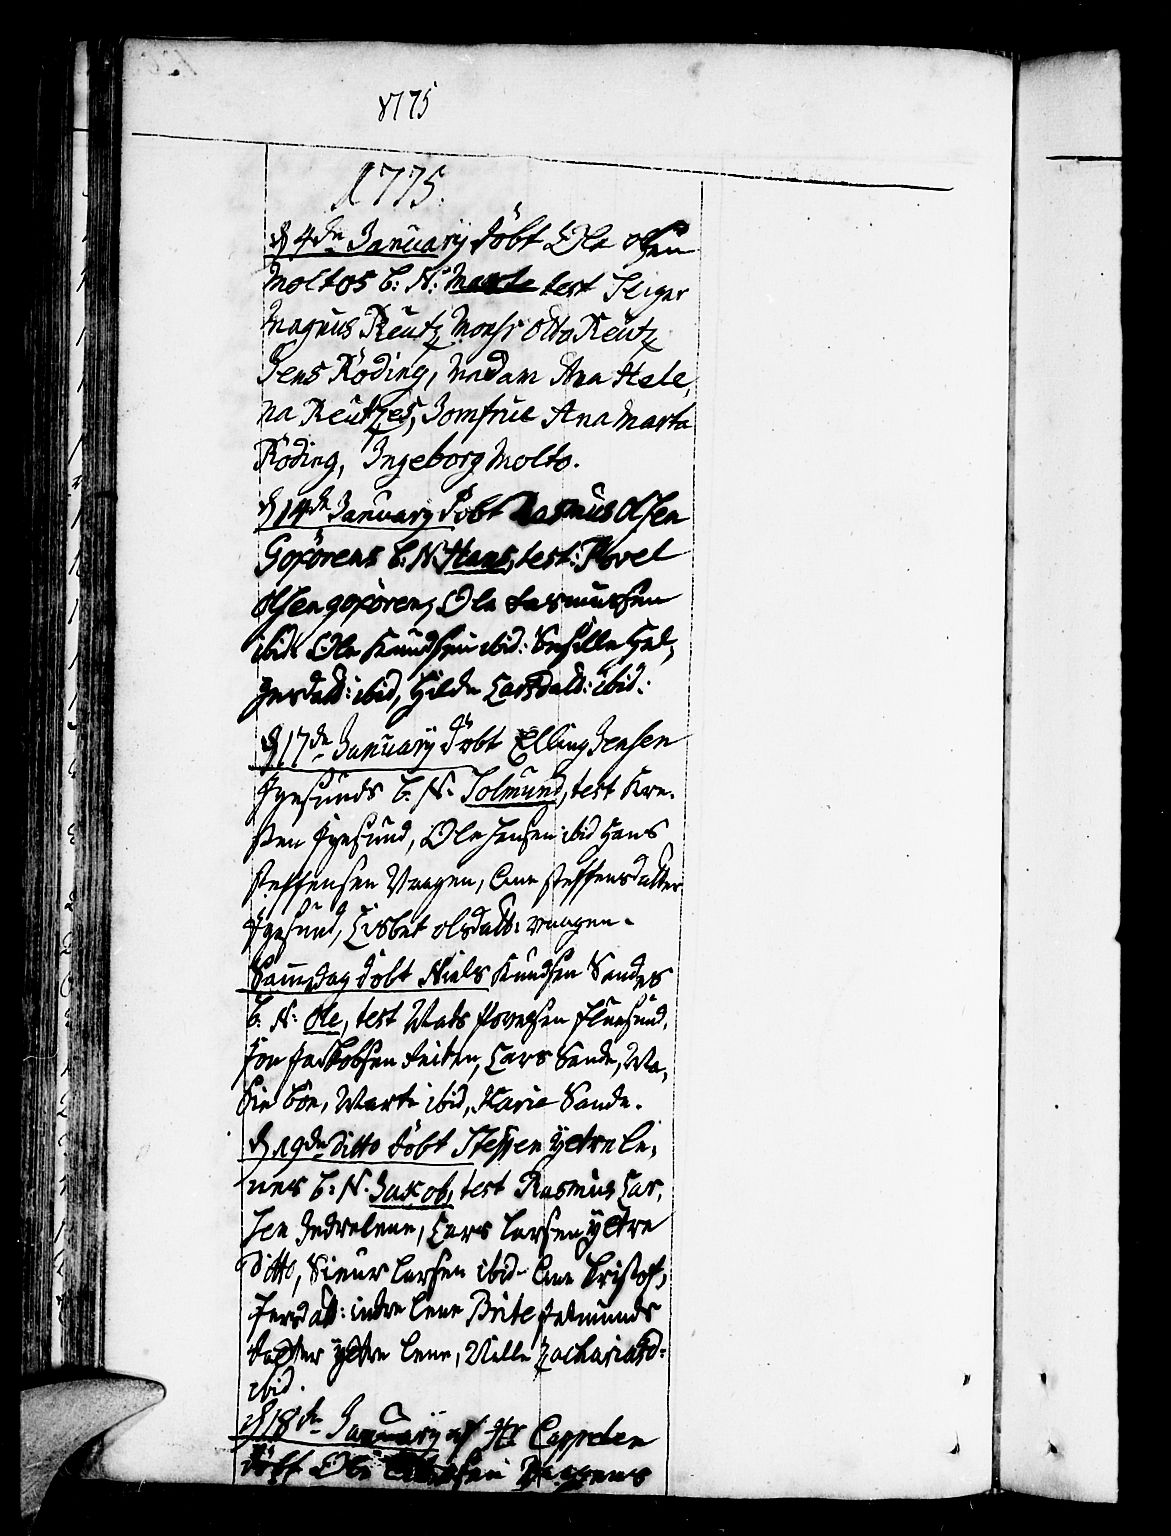 1775
1775.
d 4de January döbt Ole olsen
Moltos b: N: Marte test Seigr
Magnus Reutz Monsr Otto Reutz
Jens Röding, Madam Ana Hele,
na Reutzes, Jomfrue Ana Marta
Röding, Ingeborg Molto.
d 14de January döbt Rasmus Olsen
Goxörens b: N: Hans, test: Povel
Olsen goxören, Ole Rasmussen
ibid: Ole Knudsen ibid: Sesille Hel,
gesdatt: ibid, Gilde Larsdatt: ibid:
d 17de January döbt Elling Jensen
Igesunds b: N. Solmund, test Kre-
sten Igesund, Ole Jensen ibid Hans
steffensen Vaagen, Ane steffensdatter
Igesund, Lisbet olsdatt: vaagen.
Samdag döbt Niels Knudsen Sandes
b: N: Ole, test Mads Povelsen
Jon Jackobsen Lars Sande, Ma,
Böe, Marte ibid, Marie Sande.
d 19de ditto döbt Steffen ÿtrele,
nes b: N. Jakob, test Rasmus Lar,
sen Indrelene, Lars Larsen ÿtre
ditto, Siver Larsen ibid- Ane Kristof,
fersdatt: indre lene Brite
datter ÿtre lene, Zachariasd:
ibid.
d 18de January af Hr Cappelen
döbt Ole